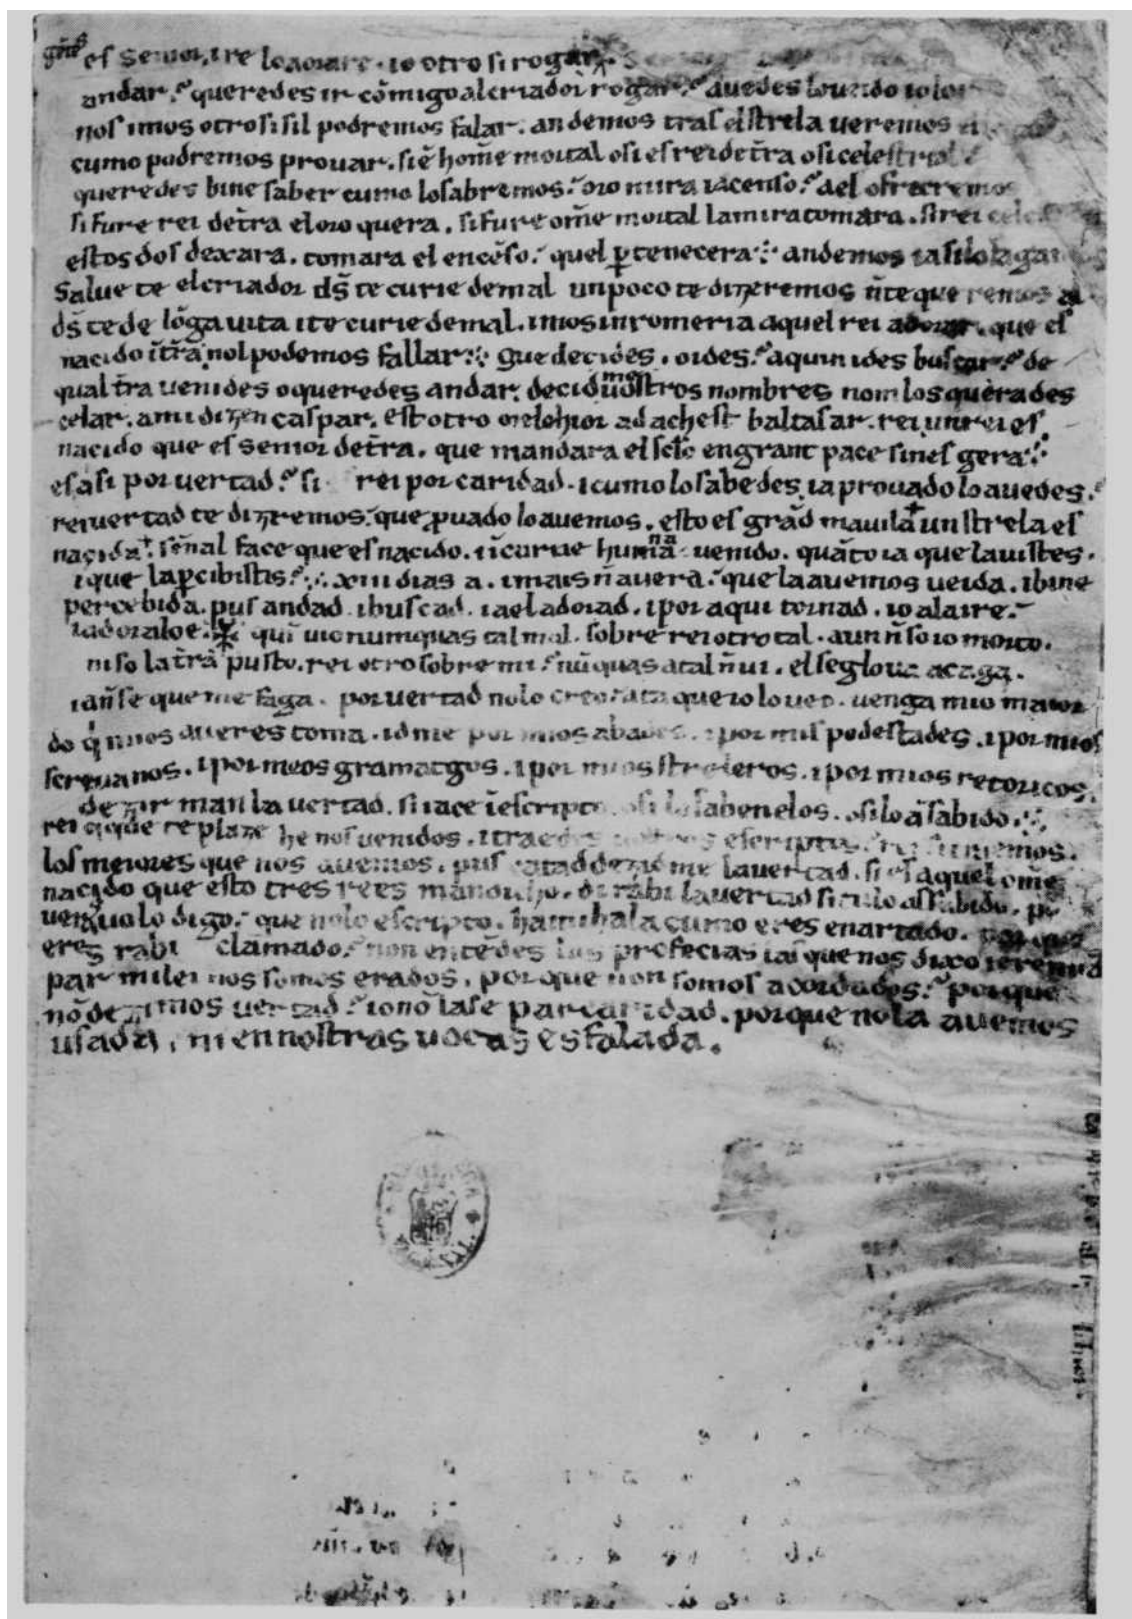 es senior, ire lo aorare. io otro si rogar
andar.? queredes ir cõmigo al criador rogar.? auedes lo ueido io lo
nos imos otro si sil podremos falar. andemos tras el strela ueremos el
cumo podremos prouar. si ẽ home mortal o si es rei det̃ra o si celestrial
queredes bine saber cumo lo sabremos.? oro mira i acenso.? a el ofrecremos
si fure rei det̃ra el oro quera. si fure ome mortal la mira tomara. si rei celes
estos dos dexara. tomara el encẽso.? quel ꝑtenecera: andemos i asi lo fagamos
Salue te el criador ds̃ te curie de mal un poco te dizeremos ñ te queremos al
ds̃ te de lõga uita i te curie de mal. imos in romeria aquel rei adorar. que es
nacido ĩ t̃ra nol podemos fallar: que decides. o ides.? a quin ides buscar.? de
qual t̃ra uenides o queredes andar. decid me uostros nombres nom los querades
celar. a mi dizen caspar. est otro melchior ad achest baltasar. rei un rei es
nacido que es senior det̃ra. que mandara el seclo en grant pace sines gera:
es asi por uertad.? si rei por caridad. i cumo lo sabedes. ia prouado lo auedes.?
rei uertad te dizremos. que ꝓuado lo auemos. esto es grãd mauila un strela es
nacida. señal face que es nacido. i ĩ carne humana uenido. quãto ia que la uistes.
i que la ꝑcibistis.? xiii dias a. i mais ñ auera.? que la auemos ueida. i bine
percebida. pus andad i buscad. i a el adorad. i por aqui tornad. io ala ire.
i adoralo e. qui uio numquas tal mal. sobre rei otro tal. aun ñ so io morto.
ni so la t̃ra pusto. rei otro sobre mi.? nũquas atal ñ ui. el seglo ua a caga.
ia ñ se que me faga. por uertad no lo creo ata que io lo ueo. uenga mio maior
do q̃ mios aueres toma. id me por mios abades. i por mis podestades. i por mios
screuanos. i por meos gramatgos. i por mios streleros. i por mios retoricos.
dezir m an la uertad. si iace ĩ escripto o si lo saben elos. o si lo ã sabido.
rei q̃ que te plaze he nos uenidos. i traedes uostros escriptos.? rei si traemos.
los meiores que nos auemos. pus catad dezid me la uertad. si es aquel ome
nacido que esto tres rees m an dicho. di rabi la uertad si tu lo as sabido. po
ueras uo lo digo.? que no lo escripto. hamihala cumo eres enartado. por que
eres rabi clamado.? non entẽdes las profecias las que nos dixo ieremias
par mi lei nos somos erados. por que non somos acordados.? por que
nõ dezimos uertad.? io nõ la se par caridad. por que no la auemos
usada, ni en nostras uocas es falada.